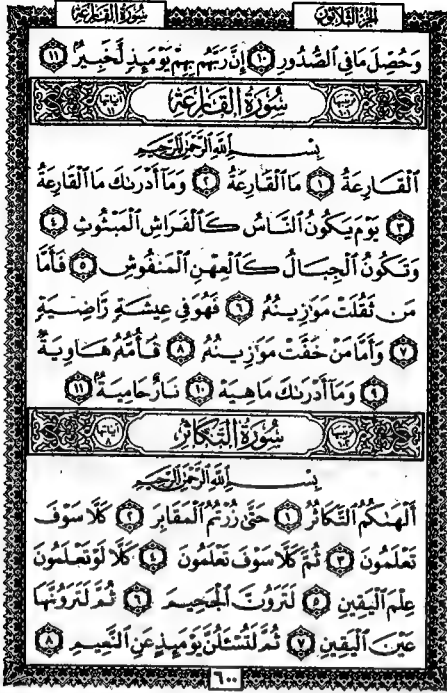 سُورَةُ القَارِعَةِ
الجُزءُ الثَّلَاثُونَ
وَحُصِّلَ مَا فِي ٱلصُّدُورِ ١٠ إِنَّ رَبَّهُم بِهِمْ يَوْمَئِذٍ لَّخَبِيرٌ ١١
سُورَةُ القَارِعَةِ
بِسْمِ ٱللَّهِ ٱلرَّحْمَٰنِ ٱلرَّحِيمِ
ٱلْقَارِعَةُ ١ مَا ٱلْقَارِعَةُ ٢ وَمَآ أَدْرَىٰكَ مَا ٱلْقَارِعَةُ
٣ يَوْمَ يَكُونُ ٱلنَّاسُ كَٱلْفَرَاشِ ٱلْمَبْثُوثِ ٤
وَتَكُونُ ٱلْجِبَالُ كَٱلْعِهْنِ ٱلْمَنفُوشِ ٥ فَأَمَّا
مَن ثَقُلَتْ مَوَٰزِينُهُۥ ٦ فَهُوَ فِي عِيشَةٍ رَّاضِيَةٍ
٧ وَأَمَّا مَنْ خَفَّتْ مَوَٰزِينُهُۥ ٨ فَأُمُّهُۥ هَاوِيَةٌ
٩ وَمَآ أَدْرَىٰكَ مَا هِيَهْ ١٠ نَارٌ حَامِيَةٌۢ ١١
سُورَةُ التَّكَاثُرِ
بِسْمِ ٱللَّهِ ٱلرَّحْمَٰنِ ٱلرَّحِيمِ
أَلْهَىٰكُمُ ٱلتَّكَاثُرُ ١ حَتَّىٰ زُرْتُمُ ٱلْمَقَابِرَ ٢ كَلَّا سَوْفَ
تَعْلَمُونَ ٣ ثُمَّ كَلَّا سَوْفَ تَعْلَمُونَ ٤ كَلَّا لَوْ تَعْلَمُونَ
عِلْمَ ٱلْيَقِينِ ٥ لَتَرَوُنَّ ٱلْجَحِيمَ ٦ ثُمَّ لَتَرَوُنَّهَا
عَيْنَ ٱلْيَقِينِ ٧ ثُمَّ لَتُسْـَٔلُنَّ يَوْمَئِذٍ عَنِ ٱلنَّعِيمِ ٨
٦٠٠